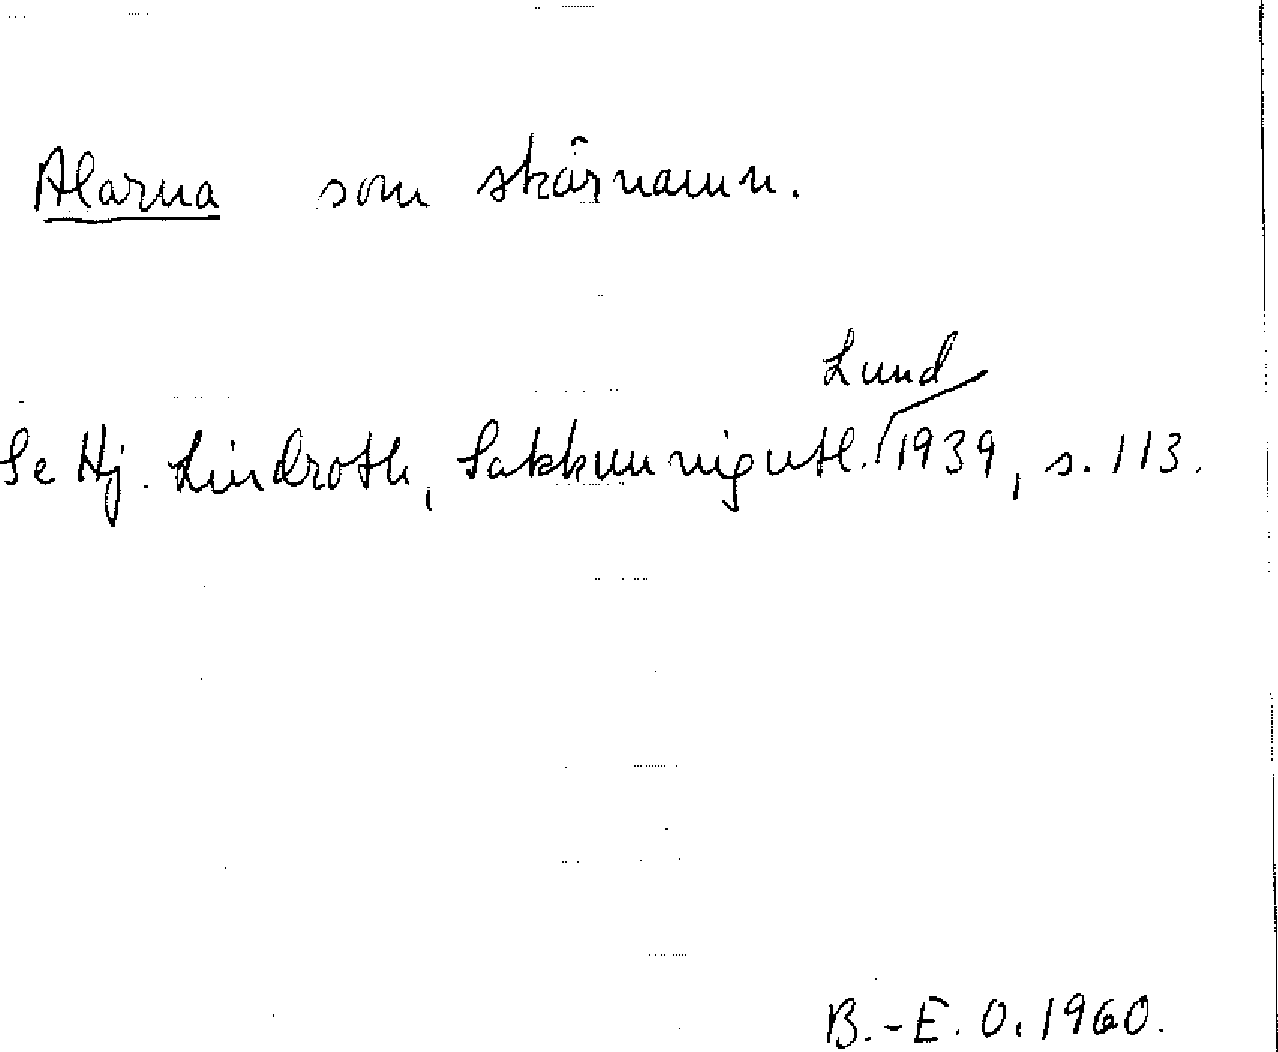 Alarna som skärnamn.
Lund
Se Hj. Lindroth, Sakkunnigutl. 1939, s. 113.
B.-E. O. 1960.